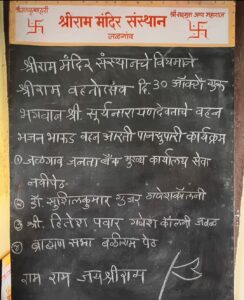 श्रीराम मंदिर संस्थान
जळगांव
श्रीराम मंदिर संस्थानचे विद्यमाने
श्रीराम वहनोत्सव दि. 30 ऑक्टो
भगवान श्री सूर्यनारायणदेवताचे वहन
भजन भारुड वहन आरती पानसुपारी कार्यक्रम
जळगाव जनता बँक मुख्य कार्यालय सेवा
नवीपेठ
डॉ. सुशिलकुमार गणेशकॉलनी
श्री. हितेश पवार गणेश कॉलनी जवळ
ब्राह्मण सभा बळीराम पेठ
राम राम जयश्रीराम